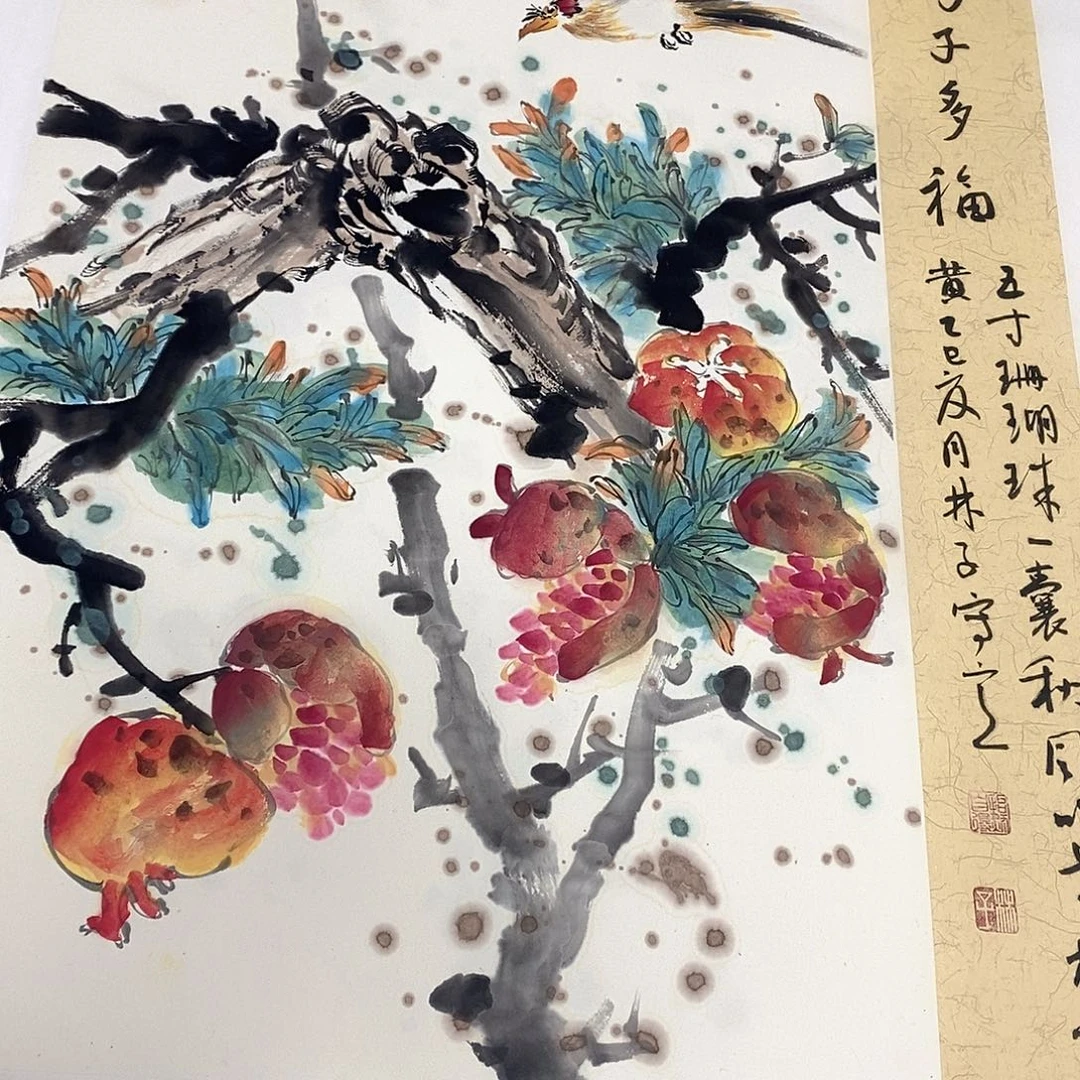 子多福
五寸珊瑚珠一囊秋风
黄乙巳夏月林子写